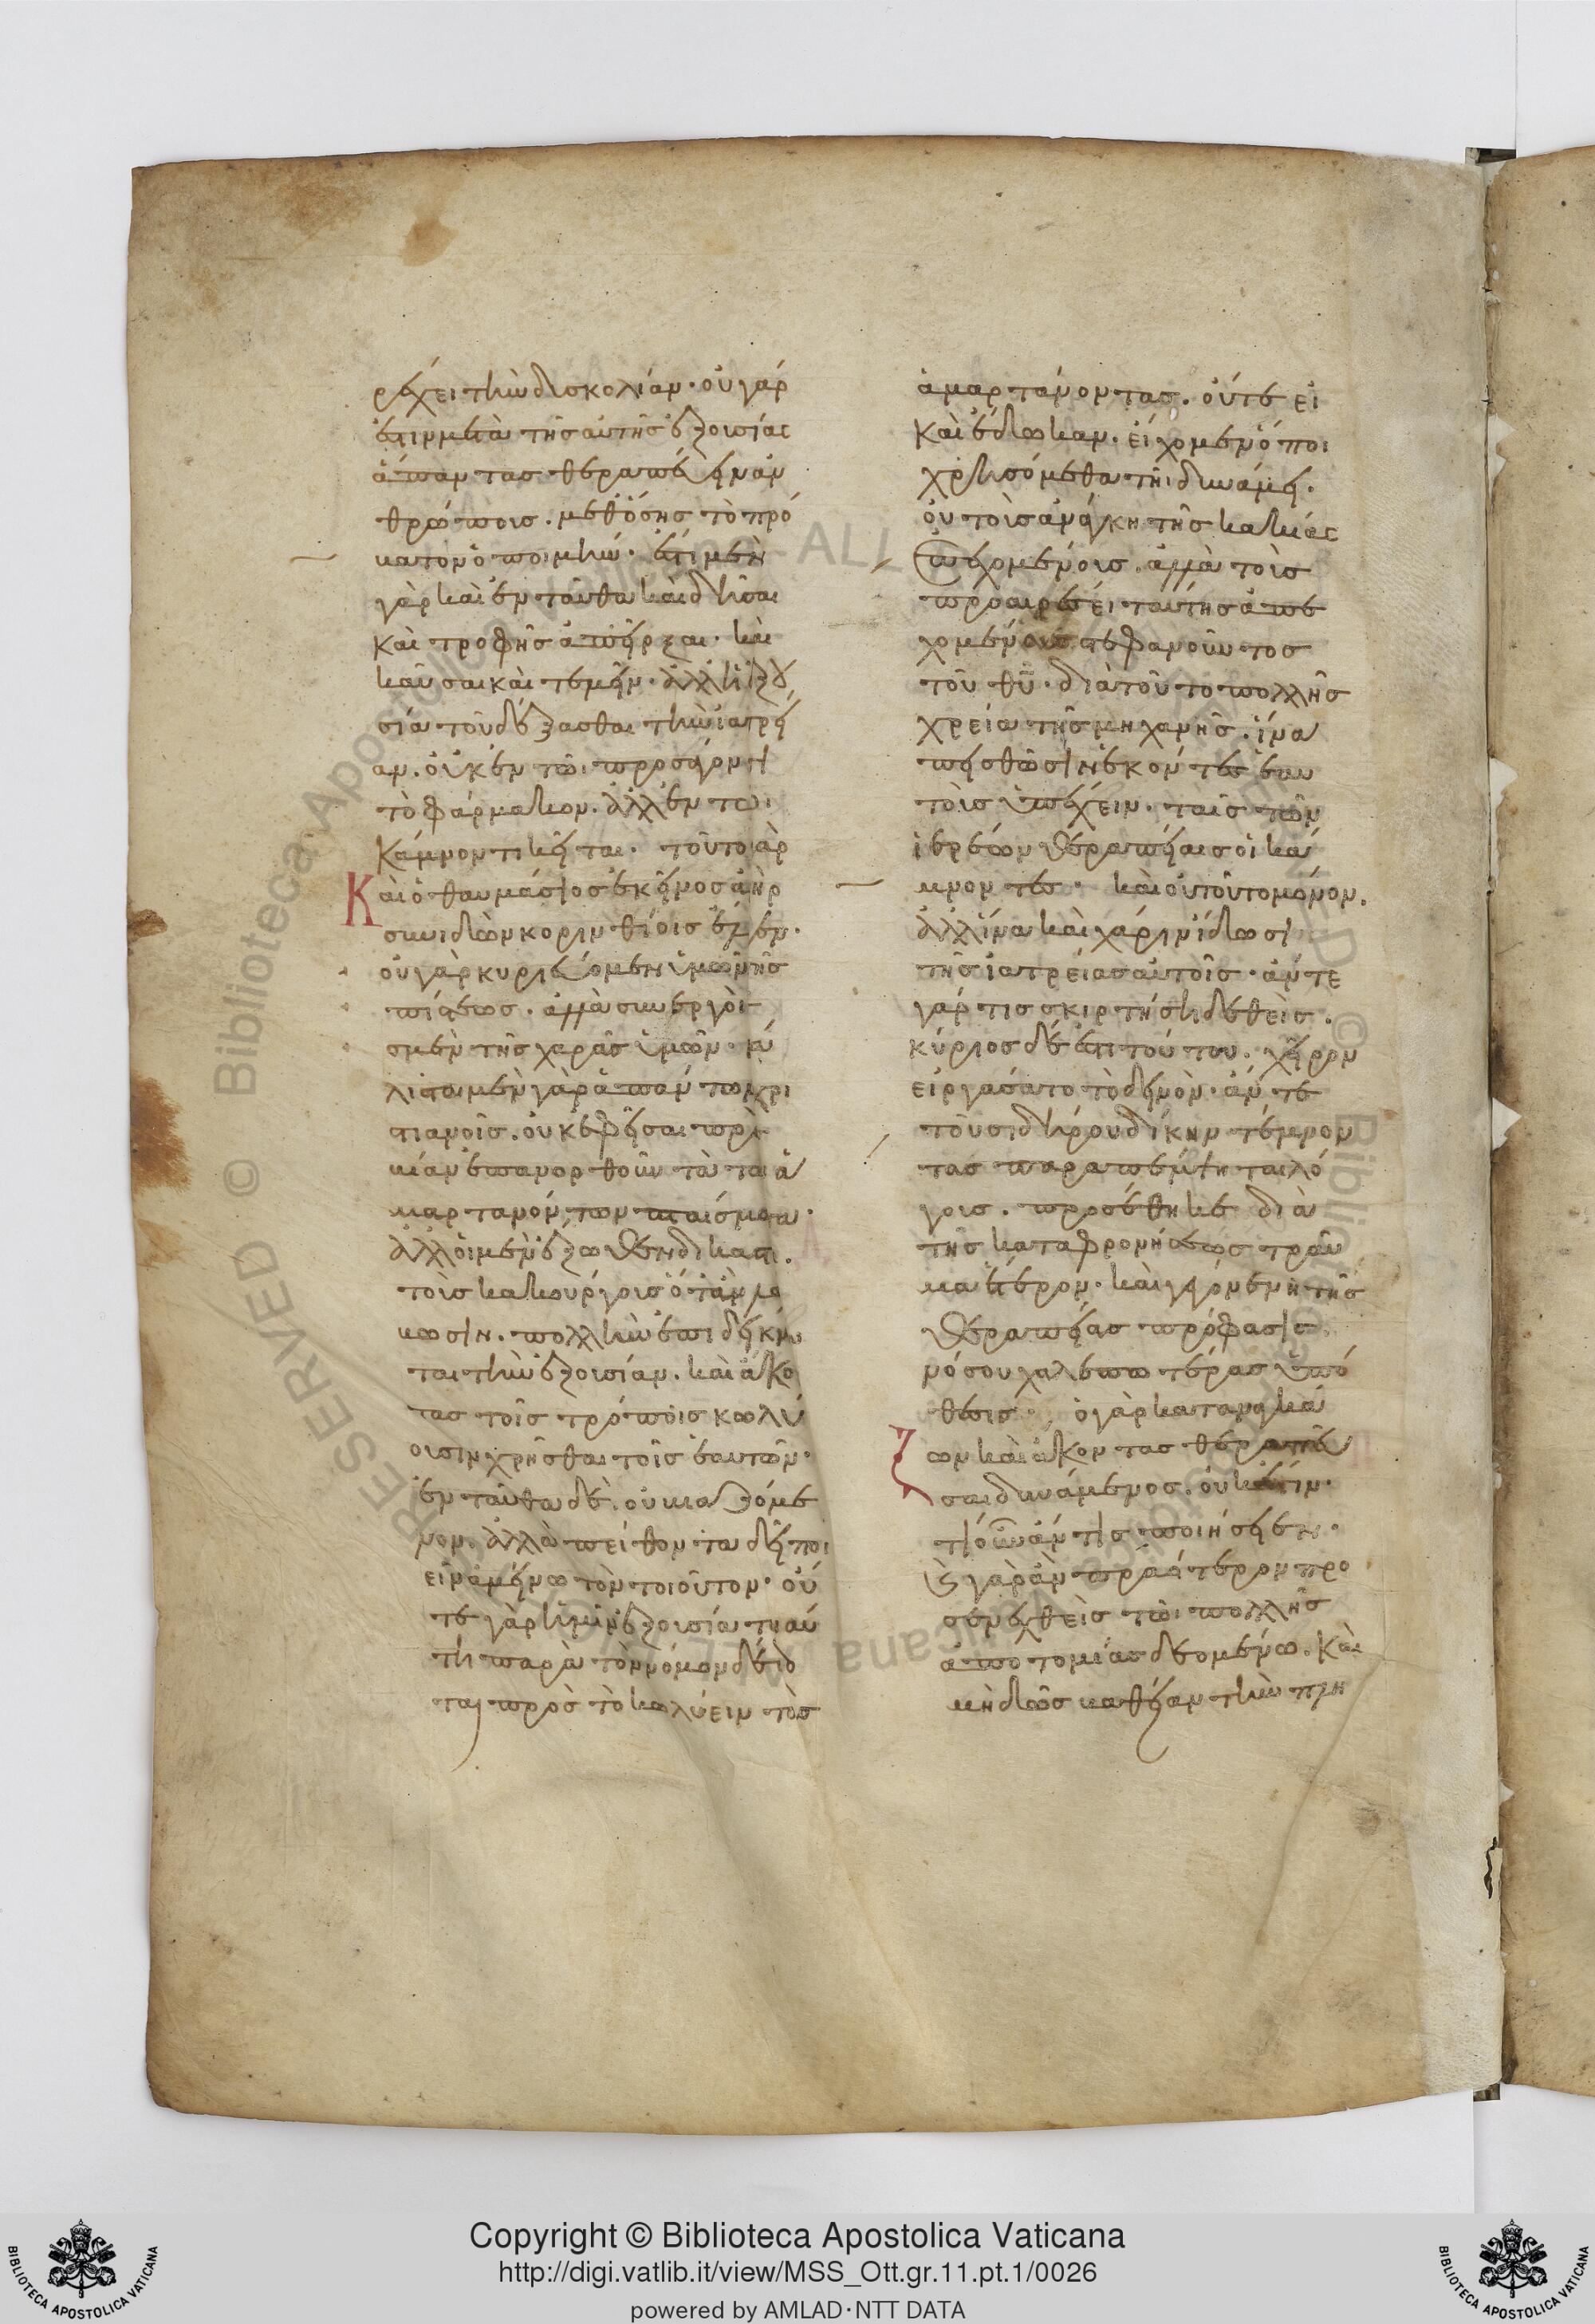 ρέχει τὴν δυσκολίαν· οὐ γὰρ
ἔστιν μετὰ τῆς αὐτῆς ἐξουσίας
ἅπαντας θεραπεύειν ἀν
θρώποις. μεθ' ὅσης τὸ πρό
βατον ὁ ποιμήν· ἔστι μὲν
γὰρ καὶ ἐνταῦθα καὶ δῆσαι
καὶ τροφῆς ἀπεῖρξαι· καὶ
καῦσαι καὶ τεμεῖν· ἀλλ' ἡ ἐξου
σία τοῦ δέξασθαι τὴν ἰατρεί
αν. οὐκ ἐν τῶι προσάγοντι
τὸ φάρμακον. ἀλλ' ἐν τῶι
κάμνοντι κεῖται· τοῦτο γὰρ
Καὶ ὁ θαυμάσιος ἐκεῖνος ἀνὴρ
συνιδὼν κορινθίοις ἔλεγεν·
οὐ γὰρ κυριεύομεν ὑμῶν τῆς
πίστεως. ἀλλὰ συνεργοί
ἐσμεν τῆς χαρᾶς ὑμῶν· μά
λιστα μὲν γὰρ ἁπάντων χρι
στιανοῖς. οὐκ ἐφεῖται πρὸς
βίαν ἐπανορθοῦν τὰ τῶν ἁ
μαρτανόντων πταίσματα·
ἀλλ' οἱ μὲν ἔξωθεν δικασταὶ.
τοὺς κακούργους ὅταν λά
βωσιν. πολλὴν ἐπιδείκνυν
ται τὴν ἐξουσίαν. καὶ ἄκον
τας τοῖς τρόποις κωλύ
ουσιν χρῆσθαι τοῖς ἑαυτῶν·
ἐνταῦθα δὲ. οὐ βιαζόμε
νον. ἀλλὰ πείθοντα δεῖ ποι
εῖν ἀμείνω τὸν τοιοῦτον· οὔ
τε γὰρ ἡμῖν ἐξουσία τοιαύ
τη παρὰ τῶν νόμων δέδο
ται πρὸς τὸ κωλύειν τοὺς
ἁμαρτάνοντας. οὔτε εἰ
καὶ ἔδωκαν. εἴχομεν ὅποι
χρησόμεθα τῆι δυνάμει.
οὐ τοὺς ἀνάγκη τῆς κακίας
ἀπεχομένους. ἀλλὰ τοὺς
προαιρέσει ταύτης ἀπε
χομένους στεφανοῦντος
τοῦ θῦ· διὰ τοῦτο πολλῆς
χρεία τῆς μηχανῆς. ἵνα
πεισθῶσιν ἑκόντες ἑαυ
τοὺς ὑπέχειν· ταῖς τῶν
ἱερέων θεραπείαις οἱ κά
μνοντες· καὶ οὐ τοῦτο μόνον.
ἀλλ' ἵνα καὶ χάριν εἰδῶσι
τῆς ἰατρείας αὐτοῖς· ἄν τε
γάρ τις σκιρτήσηι δεθεὶς.
κύριος δέ ἐστι τούτου. χεῖρον
εἰργάσατο τὸ δεινὸν· ἄν τε
τοὺς σιδήρου δίκην τέμνον
τας παραπέμψηται λό
γους. προσέθηκε διὰ
τῆς καταφρονήσεως τραῦ
μα ἕτερον· καὶ γέγονεν ἡ τῆς
θεραπείας πρόφασις
νόσου χαλεπωτέρας ὑπό
θεσις· ὁ γὰρ καταναγκά
ζων καὶ ἄκοντας θεραπεῦ
σαι δυνάμενος. οὐκ ἔστιν·
τί οὖν ἄν τις ποιήσειεν·
Εἰ γὰρ ἂν πραότερον προ
σενεχθεὶς τῶι πολλῆς
ἀποτομίας δεομένω. καὶ
μὴ δῶς βαθεῖαν τὴν τομὴν